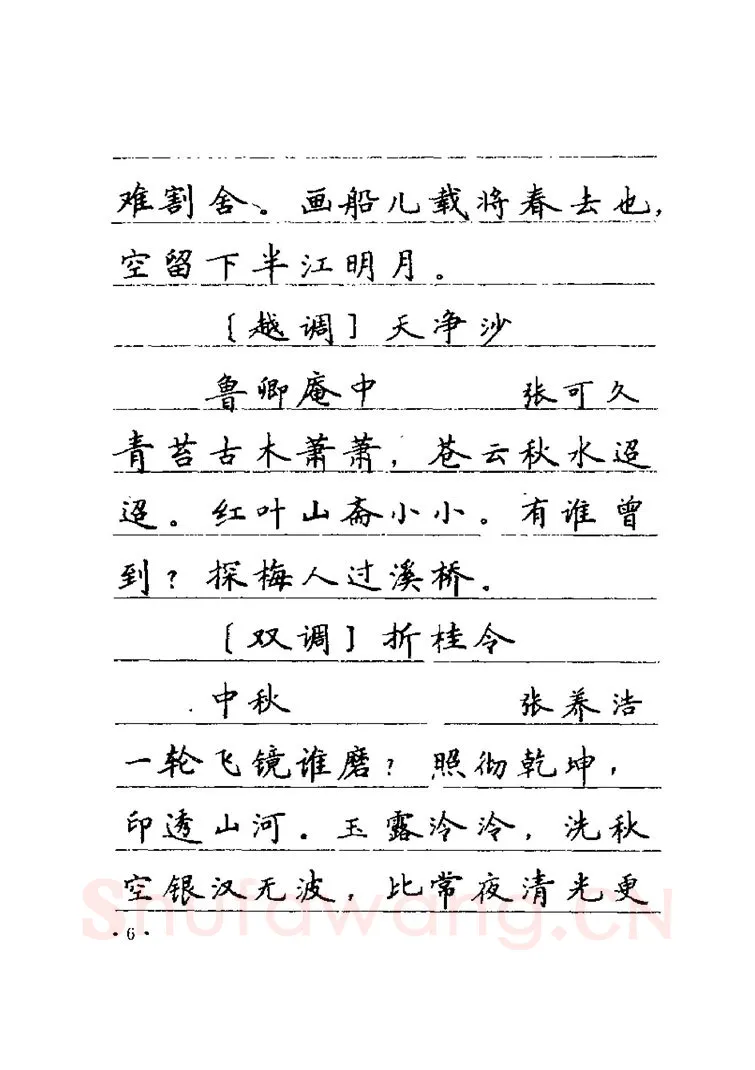 难割舍。画船儿载将春去也，
空留下半江明月。
〔越调〕天净沙
鲁卿庵中 张可久
青苔古木萧萧，苍云秋水迢
迢。红叶山斋小小。有谁曾
到？探梅人过溪桥。
〔双调〕折桂令
中秋 张养浩
一轮飞镜谁磨？照彻乾坤，
印透山河。玉露泠泠，洗秋
空银汉无波，比常夜清光更
Shufawang.CN
·6·